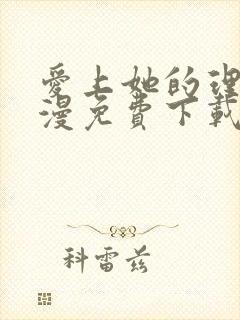 愛上她的理
漫免費下載
科雷兹